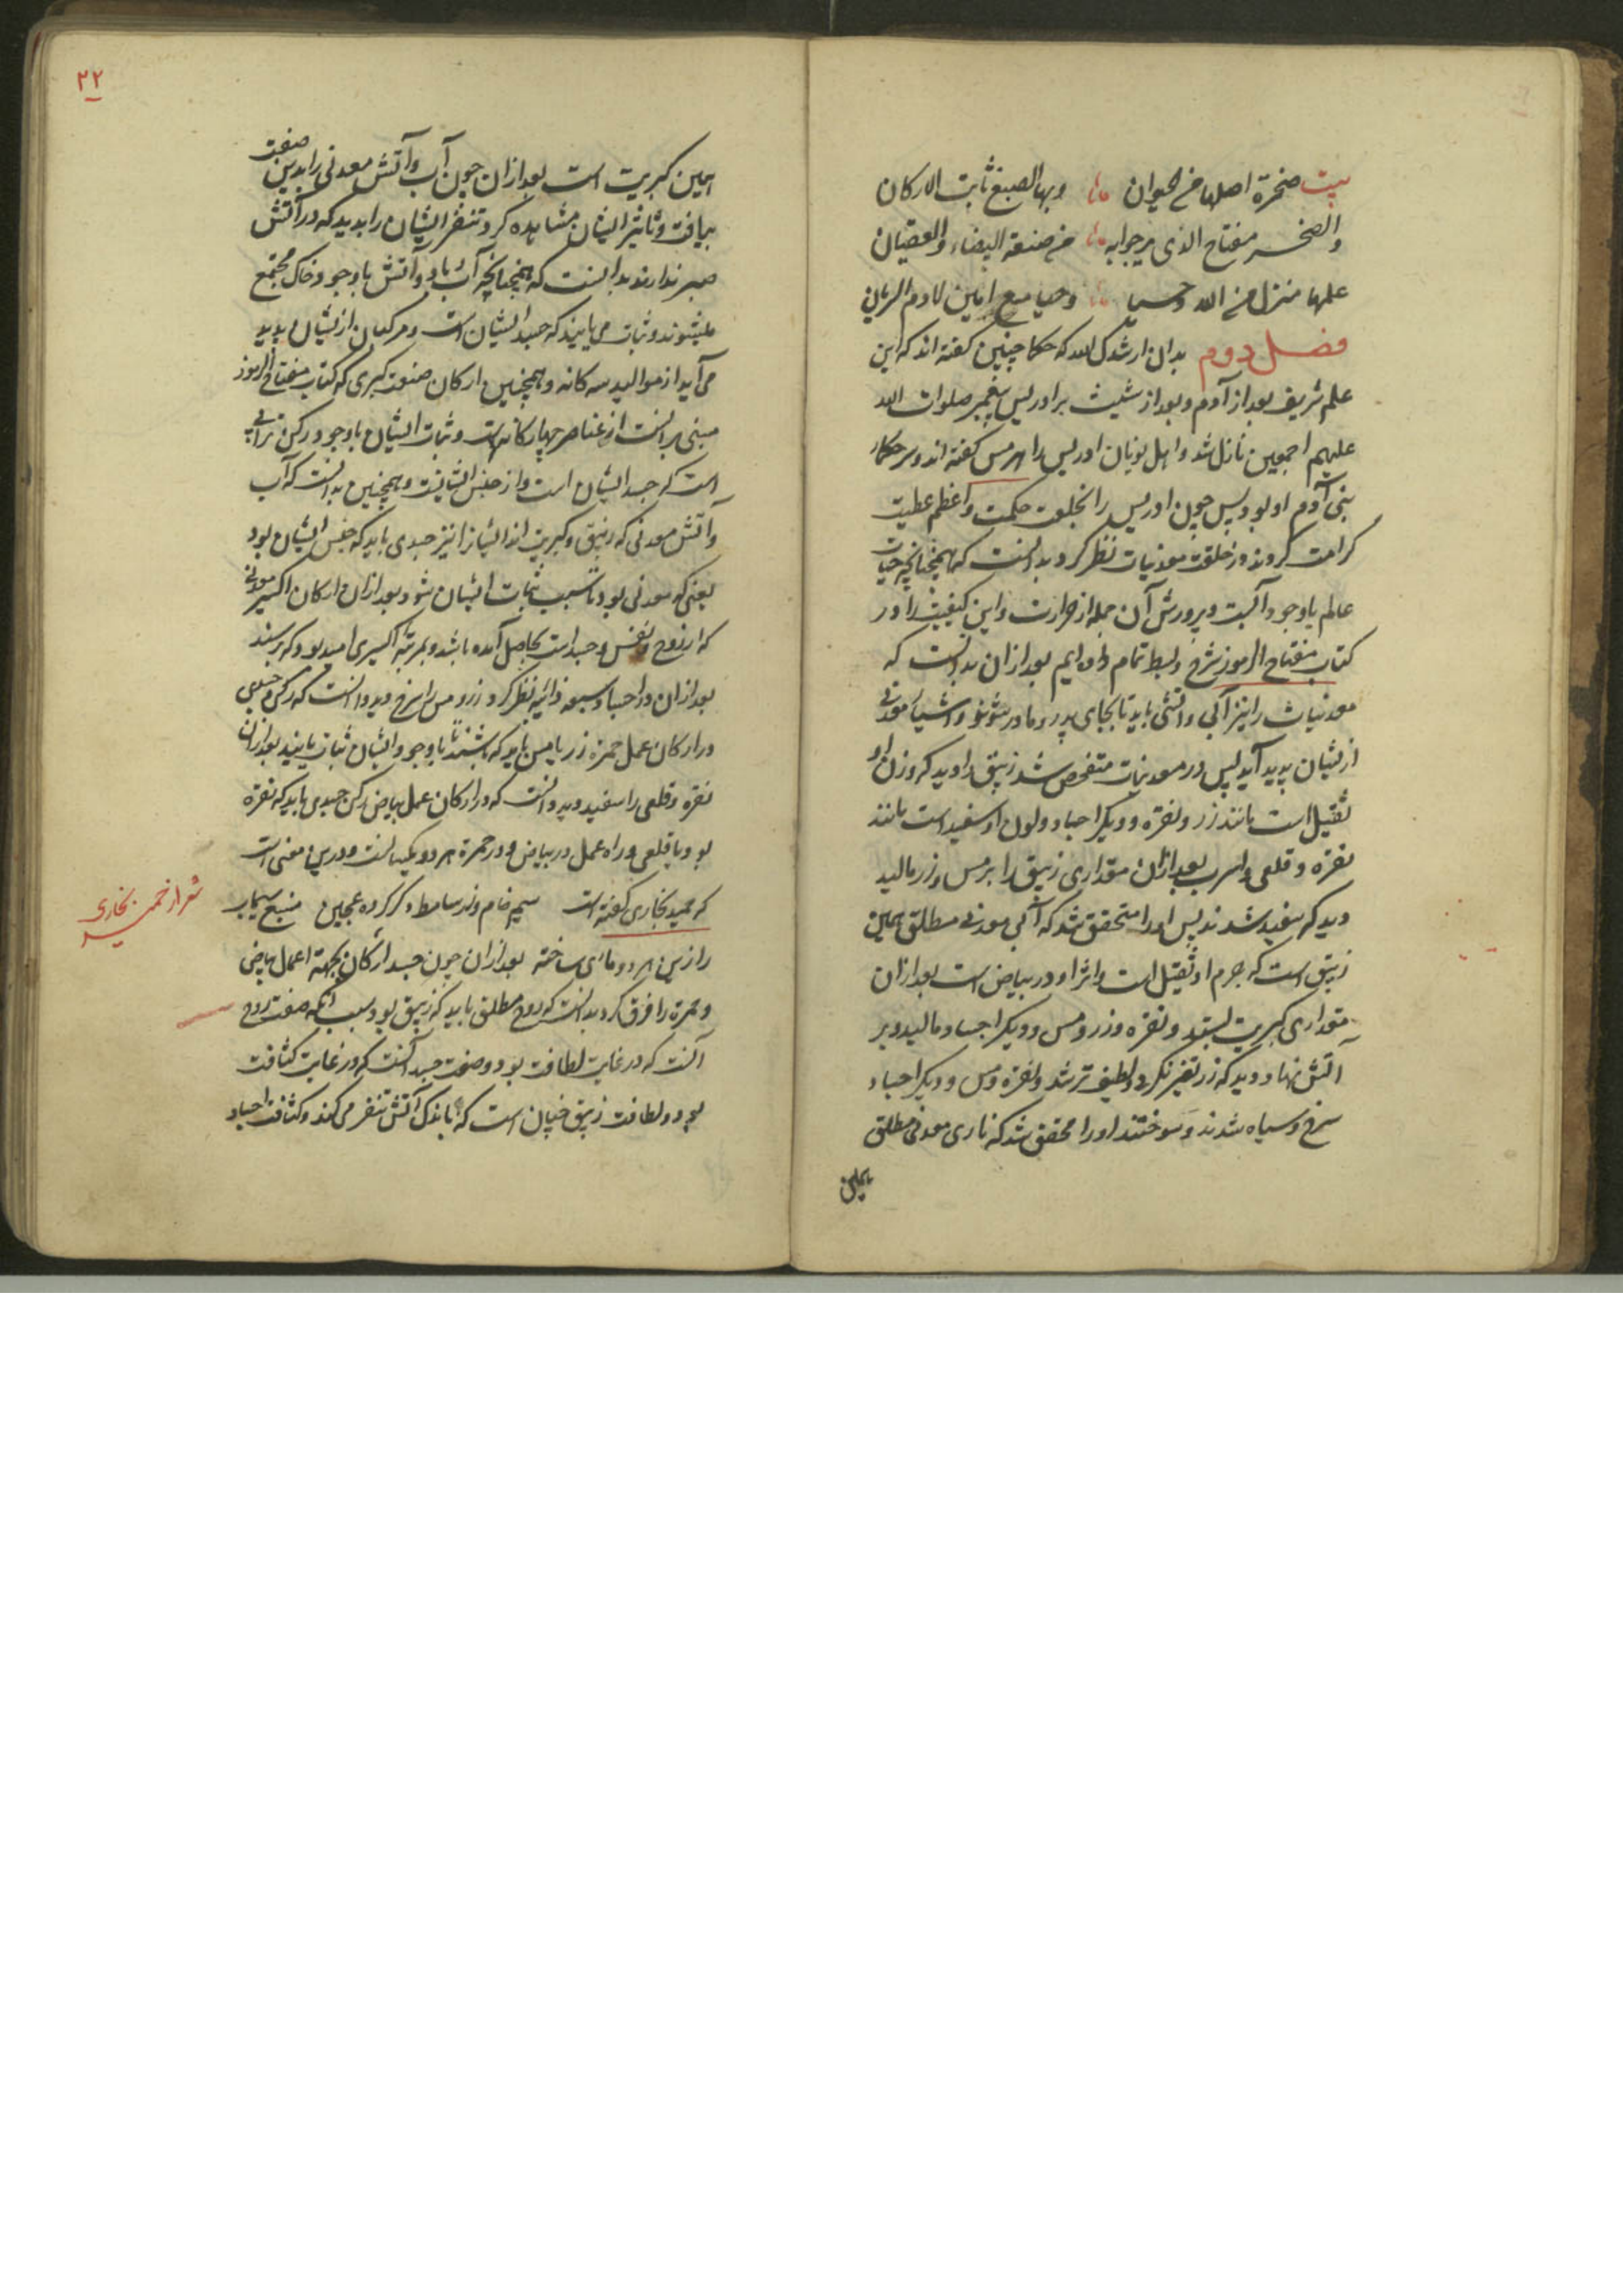 بیت صخرة اصلها من حیوان وبها الصبغ ثابت الارکان
والصخر مفتاح الذی یرجوا به من صنعة البیضاء والعقیان
علمها منزل من الله وحیا مع امین لادم
فصل دوم بدان ارشدک الله که حکما چنین گفته اند که این
علم شریف بعد از آدم و بعد از شیث بر ادریس پیغمبر صلوات الله
علیهم اجمعین نازل شد و اهل یونان ادریس را هرمس گفته اند و سر حکماء
بنی آدم او بود پس چون ادریس را بخلعت حکمت و اعظم عطیت
کرامت کردند در خلقت معدنیات نظر کرد بدانست که همچنانچه حیات
عالم با وجود آبست و پرورش آن جمله از حرارت و این کیفیت را در
کتاب مفتاح الرموز شرح و بسط تمام داده ایم بعد ازان بدانست که
معدنیات را نیز آبی و آتشی باید تا بجای پدر و مادر شوند و اشیاء معدنی
ازیشان پدید آید پس در معدنیات متفحص شد زیبق را دید که وزن او
ثقیل است مانند زر و نقره و دیگر اجساد و لون او سفید است مانند
نقره و قلعی و اسرب بعد ازان مقداری زیبق را بر مس و زر مالید
دید که سفید شدند پس او را متحقق شد که آبی معدنی مطلق همین
زیبق است که جرم او ثقیل است و اثر او در بیاض است بعد ازان
مقداری کبریت بستد و نقره و زر و مس و دیگر اجساد مالید و بر
آتش نهاد دید که زر تغیر نکرد و لطیف تر شد و نقره و مس و دیگر اجساد
سرخ و سیاه شدند و سوختند او را محقق شد که ناری معدنی مطلق
همین
۲۲
همین کبریت است بعد ازان چون آب و آتش معدنی را بدین صفت
بیافت و تاثیر ایشان مشاهده کرد و تنفر ایشان را بدید که در آتش
صبر ندارند بدانست که همچنانچه آب و باد و آتش با وجود خاک مجتمع
میشوند و ثبات می یابند که جسد ایشان است و مرکبان ازیشان پدید
می آید از موالید سه کانه و همچنین ارکان صنعت کبری که کتاب مفتاح الرموز
مبنی بر آنست از عناصر چهارکانه است و ثبات ایشان با وجود رکن ترابی
است که جسد ایشان است و از جنس ایشانست و همچنین بدانست که آب
و آتش معدنی که زیبق و کبریت اند ایشانرا نیز جسدی باید که جنس ایشان بود
یعنی که معدنی بود تا سبب ثبات ایشان شود بعد ازان ارکان اکسیر معدنی
که از روح و نفس و جسد است بحاصل آمده باشد و بمرتبه اکسیری امید بود که برسند
بعد ازان در اجساد سبعه ذائبه نظر کرد زر و مس را سرخ دید دانست که رکن جسدی
در ارکان عمل حمرة زر یا مس باید که باشند تا با وجود ایشان ثبات یابند بعد ازان
نقره و قلعی را سفید دید دانست که در ارکان عمل بیاض رکن جسدی باید که نقره
بود و یا قلعی و راه عمل در بیاض و در حمرة هر دو یکیسانست و درین معنی است
که حمید بخاری گفته است سیم خام و زر ساطع در کرده عجین منبع سیماب
را زین هر دو مأوی ساخته بعد ازان چون جسد ارکان بجهة اعمال بیاض
و حمرة را فرق کرد بدانست که روح مطلق باید که زیبق بود بسبب آنکه صفت روح
آنست که در غایت لطافت بود و صفت جسد آنست که در غایت کثافت
بود و لطافت زیبق چنان است که باندک آتش تنفر می کند و کثافت اجساد
بخاری